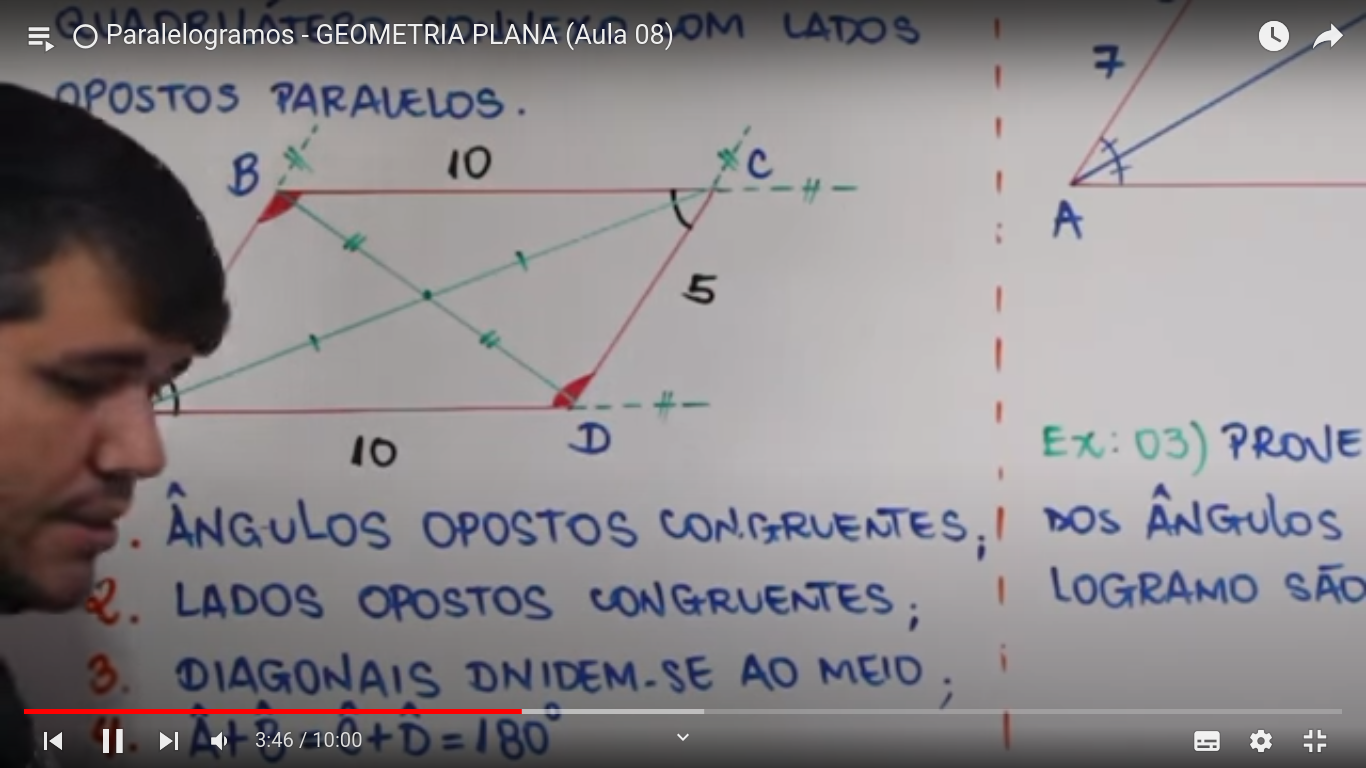 Paralelogramos - GEOMETRIA PLANA (Aula 08)
OM LADOS
OPOSTOS PARALELOS.
B 10 C
5
10 D
. ÂNGULOS OPOSTOS CONGRUENTES;
2. LADOS OPOSTOS CONGRUENTES;
3. DIAGONAIS DIVIDEM-SE AO MEIO;
4. Â+B̂=Ĉ+D̂=180°
7
A
Ex: 03) PROVE
DOS ÂNGULOS
LOGRAMO SÃO
3:46 / 10:00